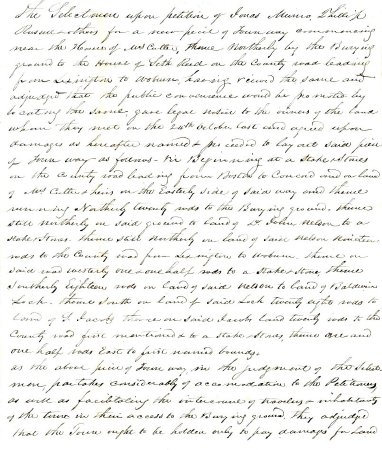 The Selectmen upon petition of Jonas Munro Phillip
Russell & others for a new piece of Town way commencing
near the House of Mr Cutter, thence Northerly by the Burying
ground to the House of Seth Reed on the County road leading
from Lexington to Woburn, having viewed the same and
adjudged that the public convenience would be promoted by
locating the same, gave legal notice to the owners of the land
whom they met on the 24th October last and agreed upon
damages as hereafter named & proceeded to lay out said piece
of Town way as follows. Viz Beginning at a Stake & Stones
on the County road leading from Boston to Concord and on land
of Mr Cutter & heirs on the Easterly side of said way and thence
running Northerly twenty rods to the Burying ground. thence
still northerly on said ground to land of Dr John Nelson to a
stake & stones. thence still Northerly on land of said Nelson nineteen
rods to the County road from Lexington to Woburn. thence on
said road westerly one & one half rods to a Stake & Stones, thence
Southerly Eighteen rods on land of said Nelson to land of Baldwin
Lock. thence South on land of said Lock twenty eight rods to
land of S. Jacobs thence on said Jacobs land twenty rods to the
County road first mentioned & to a Stake & Stones thence one and
one half rods East to first named bounds.
as the above piece of Town way, in the judgment of the Select
men, partakes considerably of accommodation to the Petitioners
as well as facilitating the intercourse of travelers & inhabitants
of the town in their access to the Burying ground, they adjudge
that the Town ought to be holden only to pay damages for Land